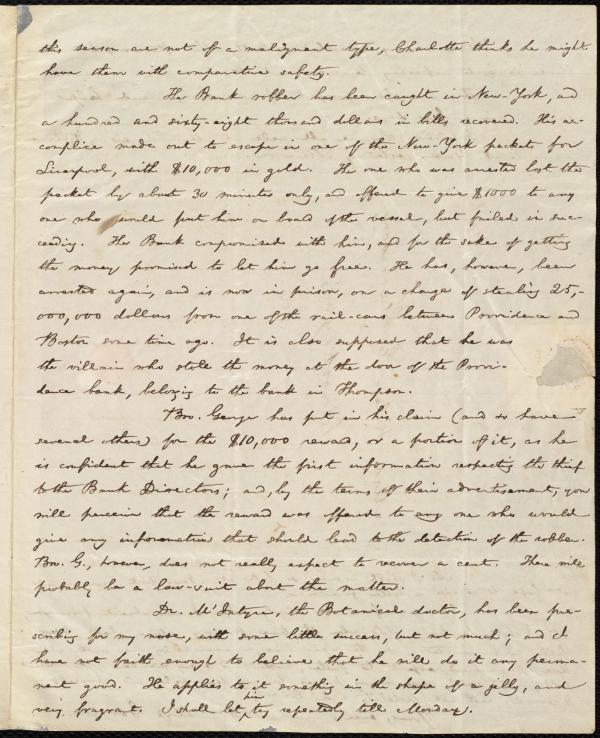 this season are not of a malignant type, Charlotte thinks he might
have them with comparative safety.
The Bank robber has been caught in New-York, and
a hundred and sixty-eight thousand dollars in bills recovered. His ac-
complice made out to escape in one of the New-York packets for
Liverpool, with $10,000 in gold. The one who was arrested lost the
packet by about 30 minutes only, and offered to give $1000 to any
one who would put him on board of the vessel, but failed in suc-
ceeding. The Bank compromised with him, and for the sake of getting
the money promised to let him go free. He has, however, been
arrested again, and is now in prison, on a charge of stealing 25,-
000,000 dollars from one of the rail-cars between Providence and
Boston some time ago. It is also supposed that he was
the villain who stole the money at the door of the Provi-
dence bank, belonging to the bank in Thompson.
Bro. George has put in his claim (and so have
several others) for the $10,000 reward, or a portion of it, as he
is confident that he gave the first information respecting the thief
to the Bank Directors; and, by the terms of their advertisement, you
will perceive that the reward was offered to any one who would
give any information that should lead to the detection of the robber.
Bro. G., however, does not really expect to recover a cent. There will
probably be a law-suit about the matter.
Dr. M'Intyre, the Botanical doctor, has been pre-
scribing for my nose, with some little success, but not much; and I
have not faith enough to believe that he will do it any perma-
nent good. He applies to it something in the shape of a jelly, and
very fragrant. I shall let him try repeatedly till Monday.